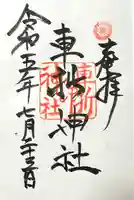 奉拝
車折神社
車折
神社
令和五年七月二十三日